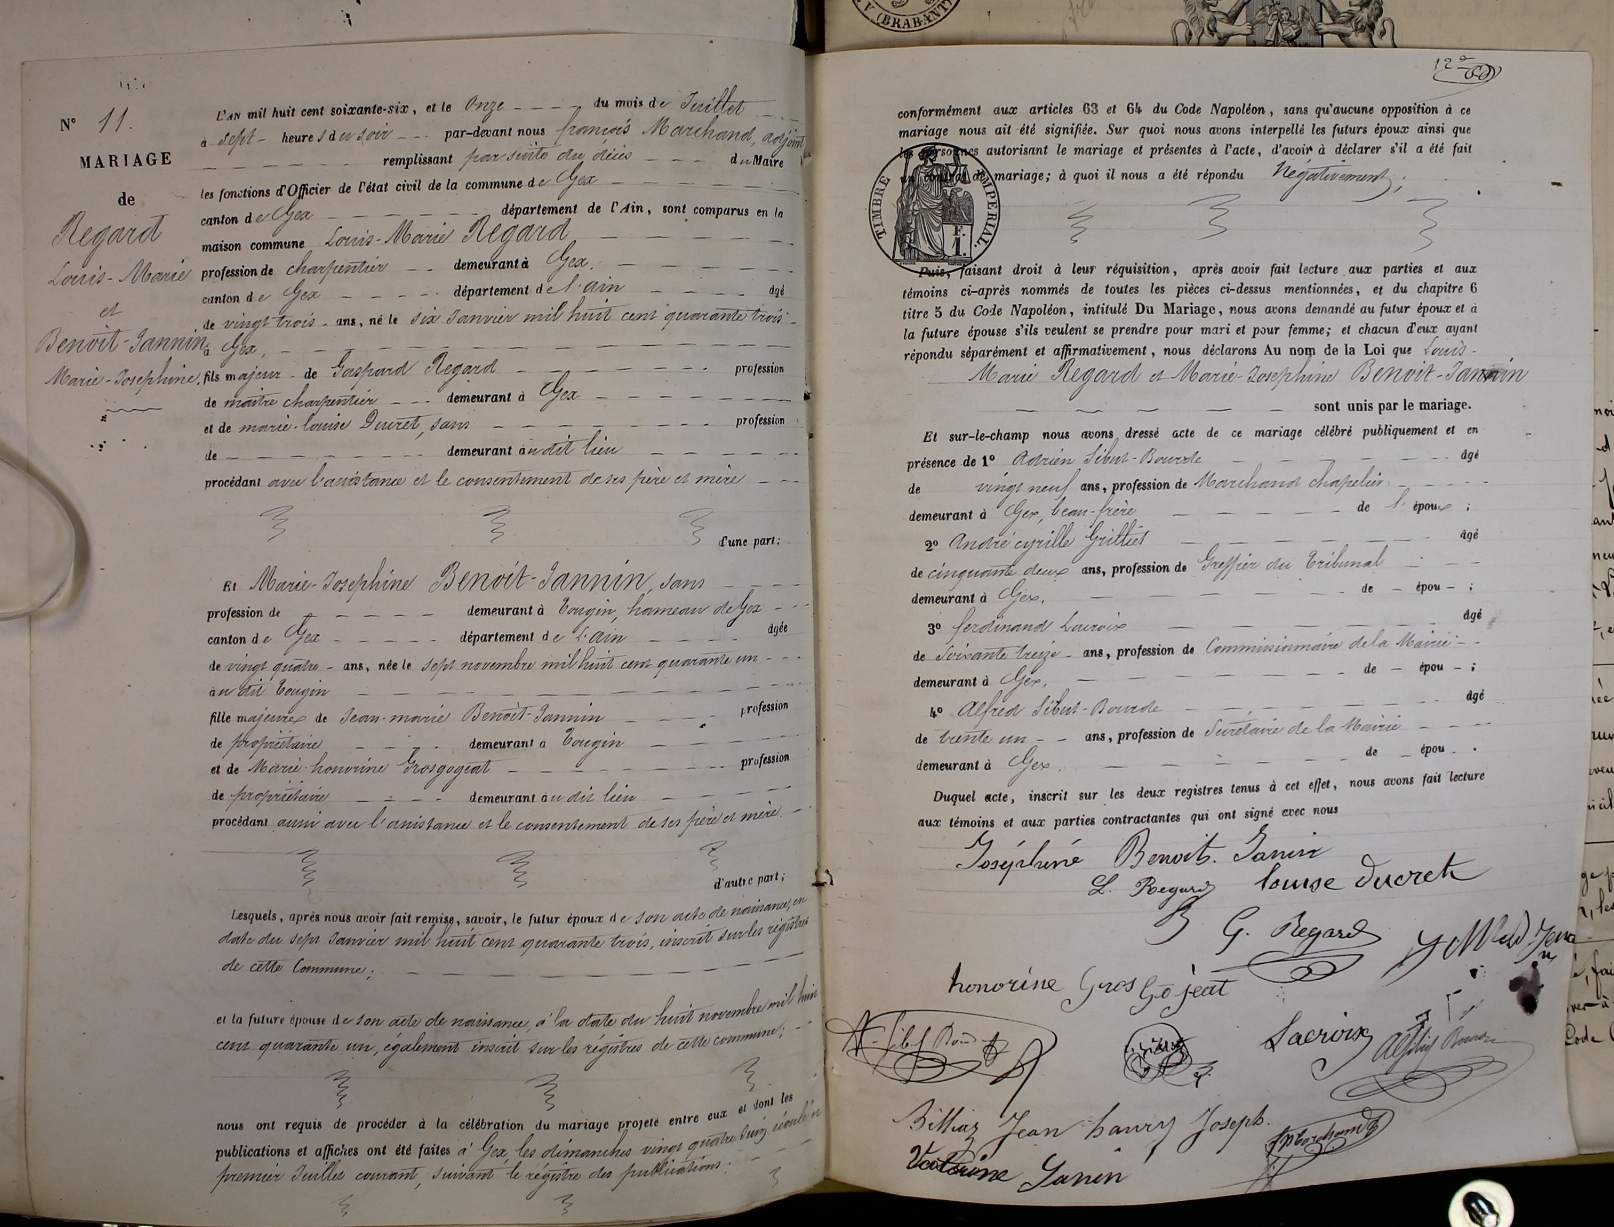 N° 11.
MARIAGE
de
Regard
Louis-Marie
et
Benoit-Jannin
Marie-Josephine.
L'AN mil huit cent soixante-six, et le Onze du mois de Juillet
à sept heures du soir par-devant nous françois Marchand, adjoint
remplissant par suite du décès du Maire
les fonctions d'Officier de l'état civil de la commune de Gex
canton de Gex département de l'Ain, sont comparus en la
maison commune Louis-Marie Regard
profession de charpentier demeurant à Gex,
canton de Gex département de l'ain âgé
de vingt trois ans, né le six Janvier mil huit cent quarante trois
à Gex,
fils majeur de Gaspard Regard profession
de maître charpentier demeurant à Gex
et de marie-louise Ducret, sans profession
de demeurant au dit lieu
procédant avec l'assistance et le consentement de ses père et mère
d'une part;
Et Marie-Josephine Benoit-Jannin, sans
profession de demeurant à Tougin, hameau de Gex
canton de Gex département de L'ain âgée
de vingt quatre ans, née le sept novembre mil huit cent quarante un
au dit Tougin
fille majeure de Jean-marie Benoit-Jannin profession
de propriétaire demeurant à Tougin
et de Marie-honorine Grosgogeat profession
de propriétaire demeurant au dit lieu
procédant aussi avec l'assistance et le consentement de ses père et mère.
d'autre part;
Lesquels, après nous avoir fait remise, savoir, le futur époux de son acte de naissance, en
date du sept Janvier mil huit cent quarante trois, inscrit sur les registres
de cette Commune;
et la future épouse de son acte de naissance, à la date du huit novembre mil huit
cent quarante un, également inscrit sur les registres de cette commune;
nous ont requis de procéder à la célébration du mariage projeté entre eux et dont les
publications et affiches ont été faites à Gex, les dimanches vingt quatre Juin écoulé et
premier Juillet courant, suivant le régistre des publications;
(BRABANT)
12
conformément aux articles 63 et 64 du Code Napoléon, sans qu'aucune opposition à ce
mariage nous ait été signifiée. Sur quoi nous avons interpellé les futurs époux ainsi que
les personnes autorisant le mariage et présentes à l'acte, d'avoir à déclarer s'il a été fait
un contrat de mariage; à quoi il nous a été répondu Négativement;
TIMBRE IMPERIAL.
1 F.
Puis, faisant droit à leur réquisition, après avoir fait lecture aux parties et aux
témoins ci-après nommés de toutes les pièces ci-dessus mentionnées, et du chapitre 6
titre 5 du Code Napoléon, intitulé Du Mariage, nous avons demandé au futur époux et à
la future épouse s'ils veulent se prendre pour mari et pour femme; et chacun d'eux ayant
répondu séparément et affirmativement, nous déclarons Au nom de la Loi que Louis-
Marie Regard et Marie-Josephine Benoit-Jannin
sont unis par le mariage.
Et sur-le-champ nous avons dressé acte de ce mariage célébré publiquement et en
présence de 1° Adrien Sibut-Bourde âgé
de vingt neuf ans, profession de Marchand chapelier
demeurant à Gex, beau-frère de l'époux;
2° André cyrille Grilliet âgé
de cinquante deux ans, profession de Greffier du Tribunal
demeurant à Gex, de épou ;
3° ferdinand Lacroix âgé
de Soixante treize ans, profession de Commissionnaire de la Mairie
demeurant à Gex, de épou ;
4° Alfred Sibut-Bourde âgé
de trente un ans, profession de Secrétaire de la Mairie
demeurant à Gex de épou .
Duquel acte, inscrit sur les deux registres tenus à cet effet, nous avons fait lecture
aux témoins et aux parties contractantes qui ont signé avec nous
Joséphine Benoit. Janin
L. Regard louise Ducret
G. Regard
honorine Gros Gojeat
Lacroix
Jean hanry Joseph.
Janin